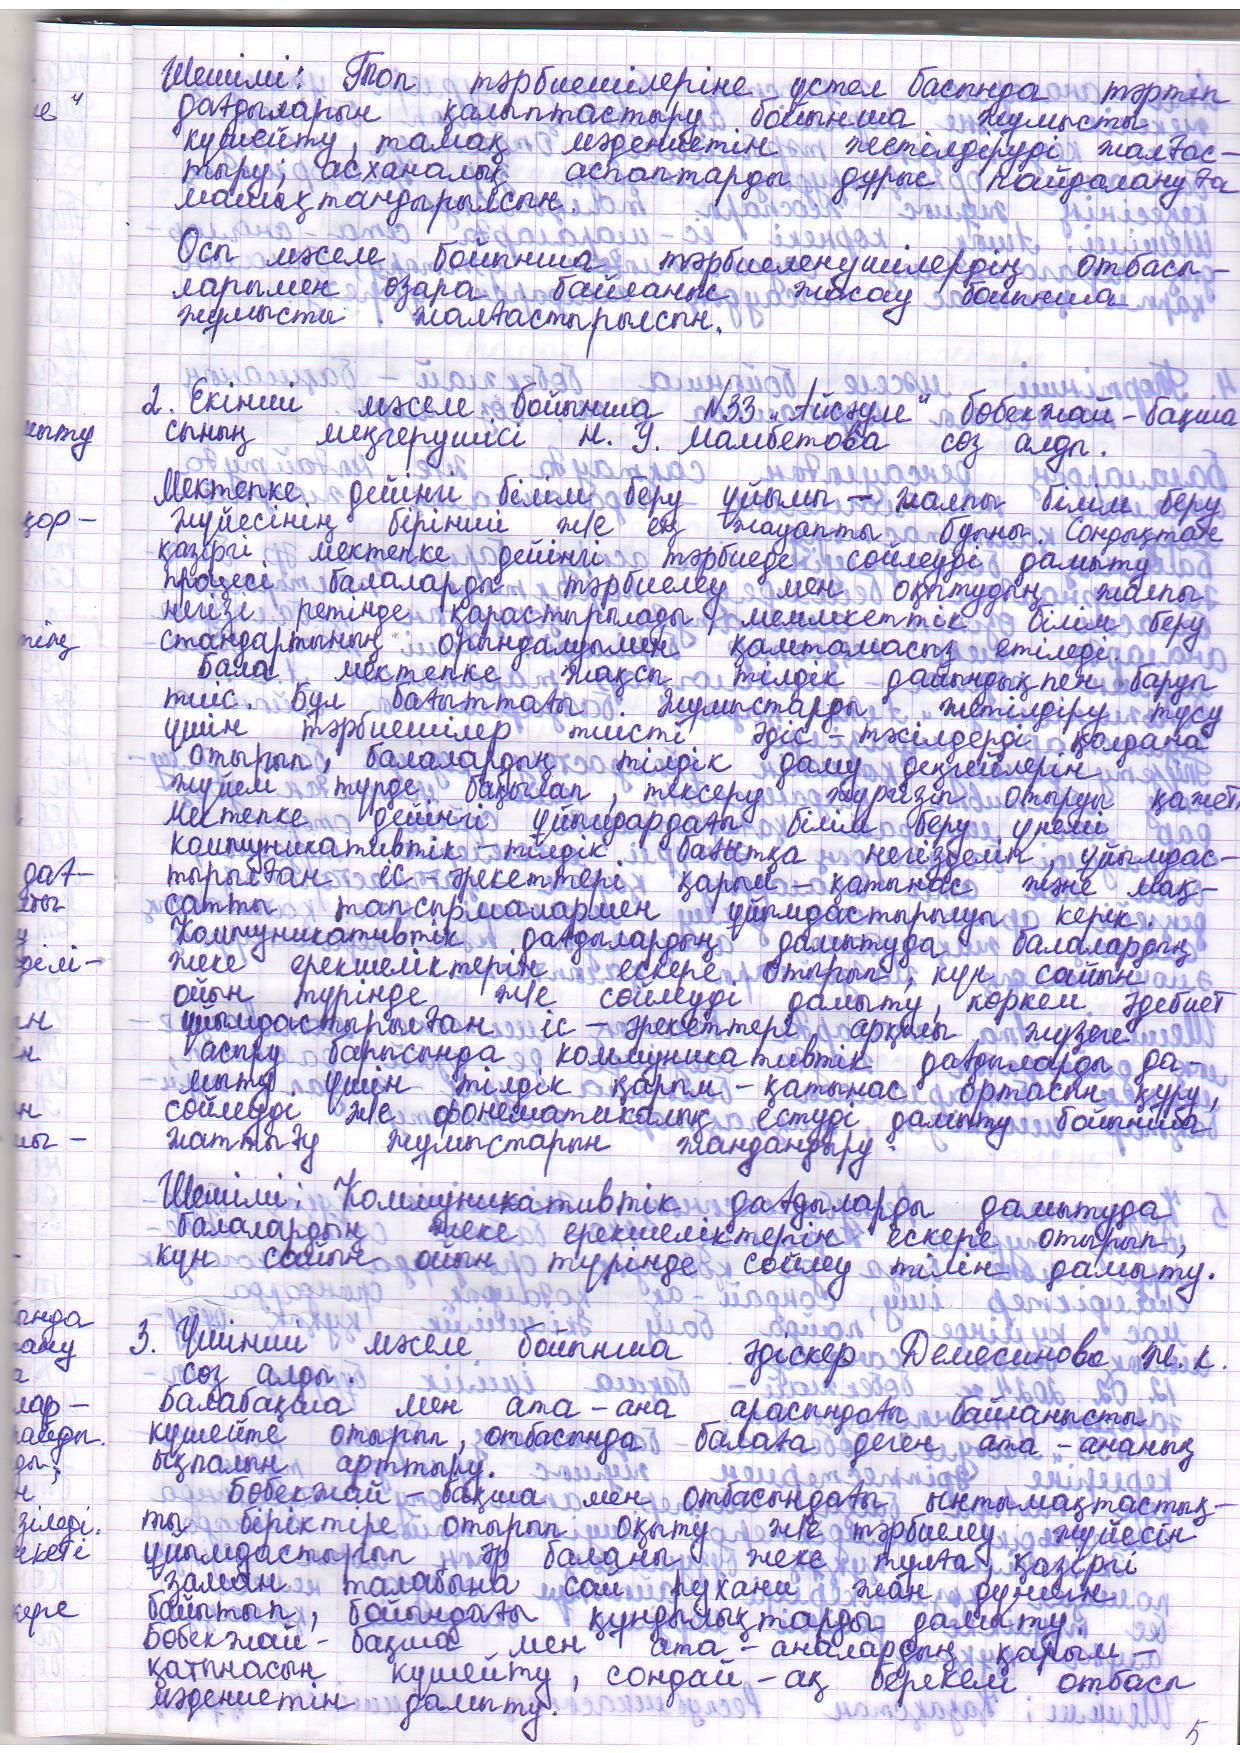 Шешімі: Топ тәрбиешілеріне үстел басында тәртіп
дағдыларын қалыптастыру бойынша жұмысты
күшейту, тамақ мәдениетін жетілдіруді жалғас-
тыру, асханалық аспаптарды дұрыс пайдалануға
машықтандырылсын.
Осы мәселе бойынша тәрбиеленушілердің отбасы-
ларымен өзара байланыс жасау бойынша
жұмысты жалғастырылсын.
2. Екінші мәселе бойынша №33 „Айсәуле“ бөбекжай-бақша
сының меңгерушісі М. У. Мамбетова сөз алды.
Мектепке дейінгі білім беру ұйымы - жалпы білім беру
жүйесінің бірінші ж/е ең жауапты буыны. Сондықтан
қазіргі мектепке дейінгі тәрбиеде сөйлеуді дамыту
процесі балаларды тәрбиелеу мен оқытудың жалпы
негізі ретінде қарастырылады, мемлкеттік білім беру
стандартының орындалуымен қамтамасыз етіледі.
Бала мектепке жақсы тілдік дайындықпен баруы
тиіс. Бұл бағыттағы жұмыстарды жетілдіру түсу
үшін тәрбиешілер тиісті әдіс-тәсілдерді қолдана
отырып, балалардың тілдік даму деңгейлерін
жүйелі түрде бақылап, тексеру жүргізіп отыруы қажет
Мектепке дейінгі ұйымдардағы білім беру үнемі
коммуникативтік-тілдік бағытқа негізделіп, ұйымдас-
тырылған іс-әрекеттері қарым-қатынас және мақ-
сатты тапсырмалармен ұйымдастырылуы керек.
Коммуникативтік дағдылардың дамытуда балалардың
жеке ерекшеліктерін ескере отырып, күн сайын
ойын түрінде ж/е сөйлеуді дамыту, көркем әдебиет
ұйымдастырылған іс-әрекеттері арқылы жүзеге
асыру барысында коммуникативтік дағдыларды да-
мыту үшін тілдік қарым-қатынас ортасын құру,
сөйлеуді ж/е фонематикалық естуді дамыту бойынша
жаттығу жұмыстарын жандандыру.
Шешімі: Коммуникативтік дағдыларды дамытуда
балалардың жеке ерекшеліктерін ескере отырып,
күн сайын ойын түрінде сөйлеу тілін дамыту.
3. Үшінші мәселе бойынша әдіскер Демесинова Ж. К.
сөз алды.
Балабақша мен ата-ана арасындағы байланысты
күшейте отырып, отбасында балаға деген ата-ананың
ықпалын арттыру.
Бөбекжай-бақша мен отбасындағы ынтымақтастық-
ты біріктіре отырып оқыту ж/е тәрбиелеу жүйесін
ұйымдастырып әр баланы жеке тұлға, қазіргі
заман талабына сай рухани жан дүниесін
байытып, бойындағы құндылықтарды дамыту.
Бөбекжай-бақша мен ата-аналардың қарым-
қатынасын күшейту, сондай-ақ берекелі отбасы
мәдениетін дамыту.
5